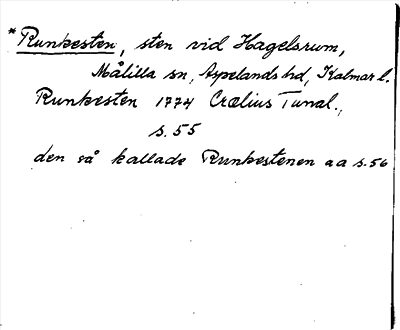 *Runkesten, sten vid Hagelsrum,
Målilla sn, Aspelands hd, Kalmar l.
Runkesten 1774 Crælius Tunal.,
s. 55
den så kallade Runkestenen a a s. 56